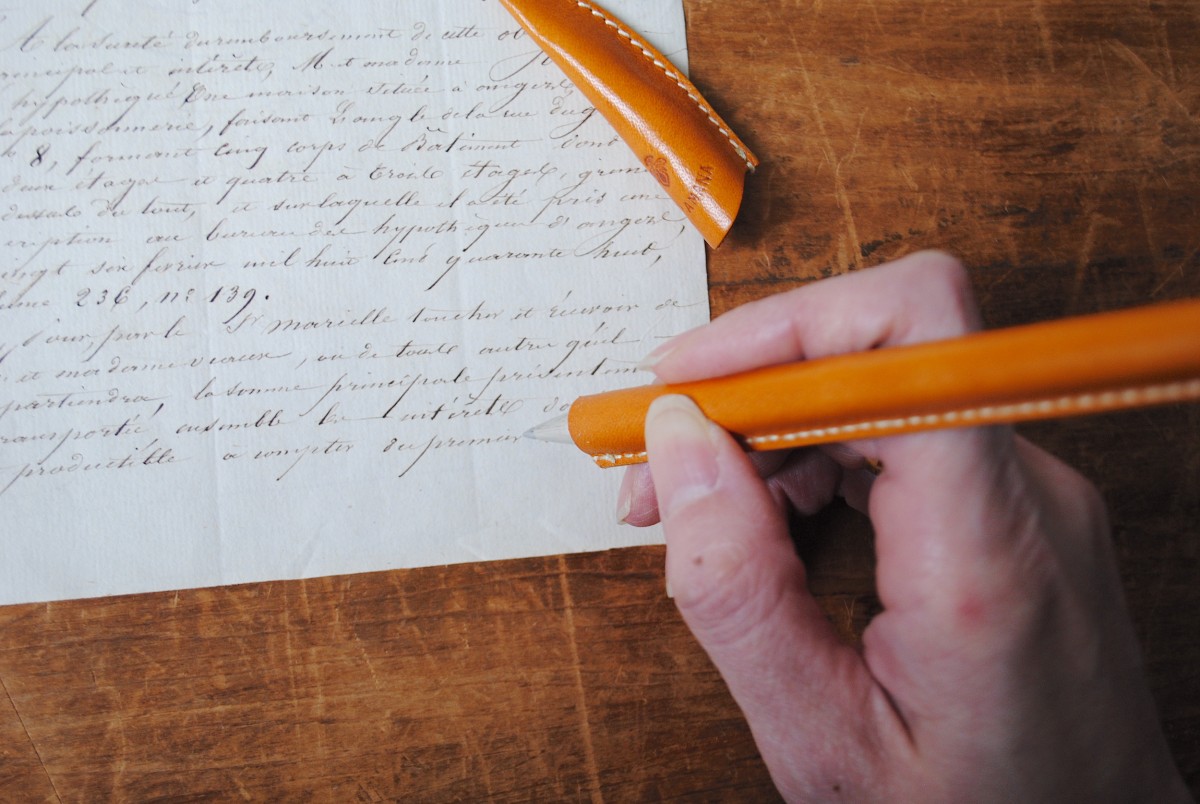 A la sureté du remboursement de cette
principal et intérêts, M et madame
hypothèqué Une maison située à angers
la poissonnerie, faisant L'angle de la rue du
8, formant cinq corps de Bâtiment dont
deux étages et quatre à trois étages,
dessous du tout, et sur laquelle il a été pris une
cription au bureau des hypothèques d'angers,
vingt six février mil huit Cent quarante huit,
236, nº 139.
par le Sr marielle toucher et recevoir de
et madame, ou de toute autre qu'il
partiendra, la somme principale présentem
transportée ensemble les intérêts
productible à compter du premier
ANNA